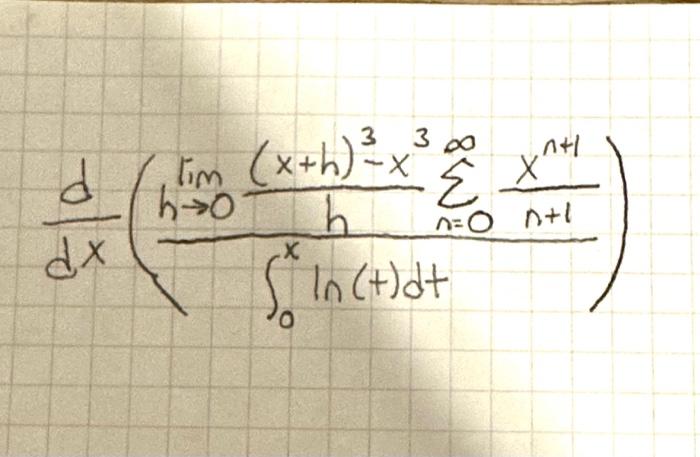 d/dx ( lim h→0 (x+h)³-x³ / h ∑ n=0 ∞ xⁿ⁺¹ / n+1
∫₀ˣ ln(t)dt )